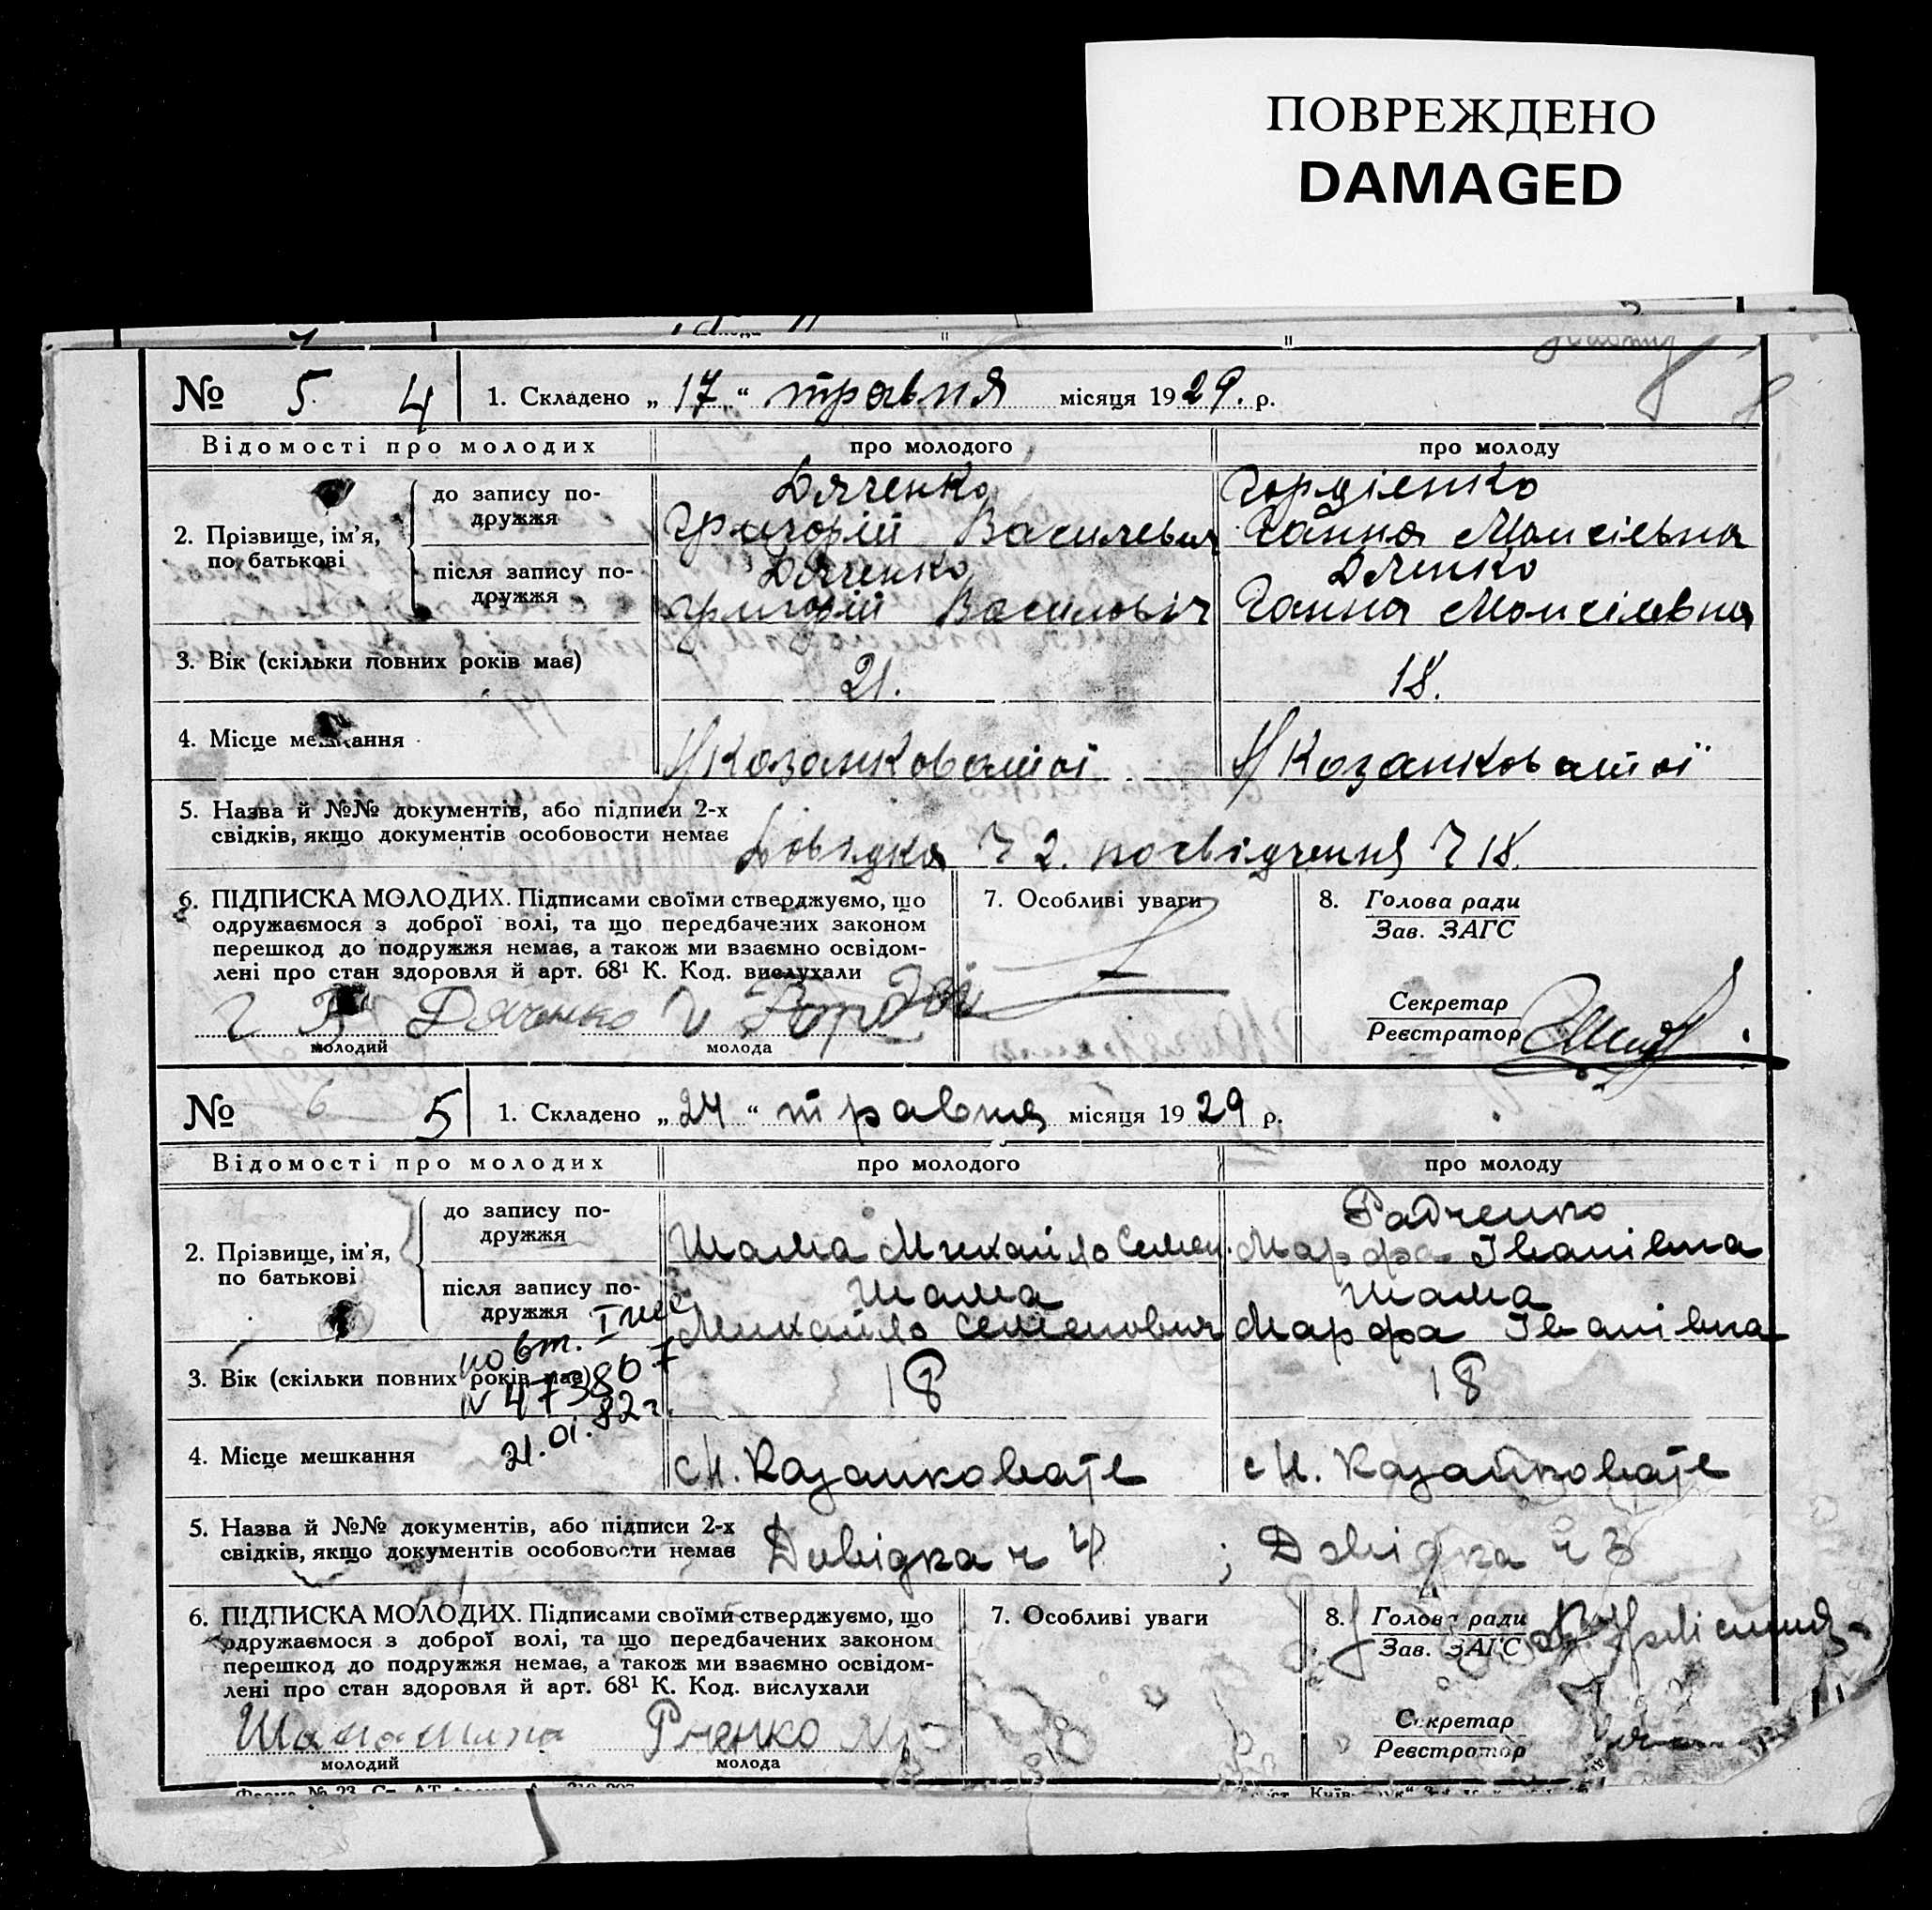 ПОВРЕЖДЕНО
DAMAGED
№ 5 4 1. Складено „17“ травня місяця 1929. р.
Відомості про молодих про молодого про молоду
2. Прізвище, ім'я, по батькові
до запису подружжя
Дяченко Гордієнко
Григорій Василевич Ганна Мойсіевна
після запису подружжя
Дяченко Дяченко
Григорій Василович Ганна Мойсіевна
3. Вік (скільки повних років має) 21. 18.
4. Місце мешкання Козанковатої Козанковатої
5. Назва й №№ документів, або підписи 2-х
свідків, якщо документів особовости немає Довідка Ч 2. посвідчення Ч 18.
6. ПІДПИСКА МОЛОДИХ. Підписами своїми стверджуємо, що
одружаємося з доброї волі, та що передбачених законом
перешкод до подружжя немає, а також ми взаємно освідом-
лені про стан здоровля й арт. 68¹ К. Код. вислухали
Дяченко
молодий молода
7. Особливі уваги
8. Голова ради
Зав. ЗАГС
Секретар
Реєстратор
№ 6 5 1. Складено „24“ травня місяця 1929 р.
Відомості про молодих про молодого про молоду
2. Прізвище, ім'я, по батькові
до запису подружжя
Радченко
Шама Михайло Семен. Марфа Іванівна
після запису подружжя
Шама Шама
Михайло Семенович Марфа Іванівна
повт. I
N 47380
21.01.82г.
3. Вік (скільки повних років має) 18 18
4. Місце мешкання с М. Казанковате с М. Казанковате
5. Назва й №№ документів, або підписи 2-х
свідків, якщо документів особовости немає Довідка ч 4 ; Довідка ч 3
6. ПІДПИСКА МОЛОДИХ. Підписами своїми стверджуємо, що
одружаємося з доброї волі, та що передбачених законом
перешкод до подружжя немає, а також ми взаємно освідом-
лені про стан здоровля й арт. 68¹ К. Код. вислухали
Шама
молодий молода
7. Особливі уваги
8. Голова ради
Зав. ЗАГС
Секретар
Реєстратор